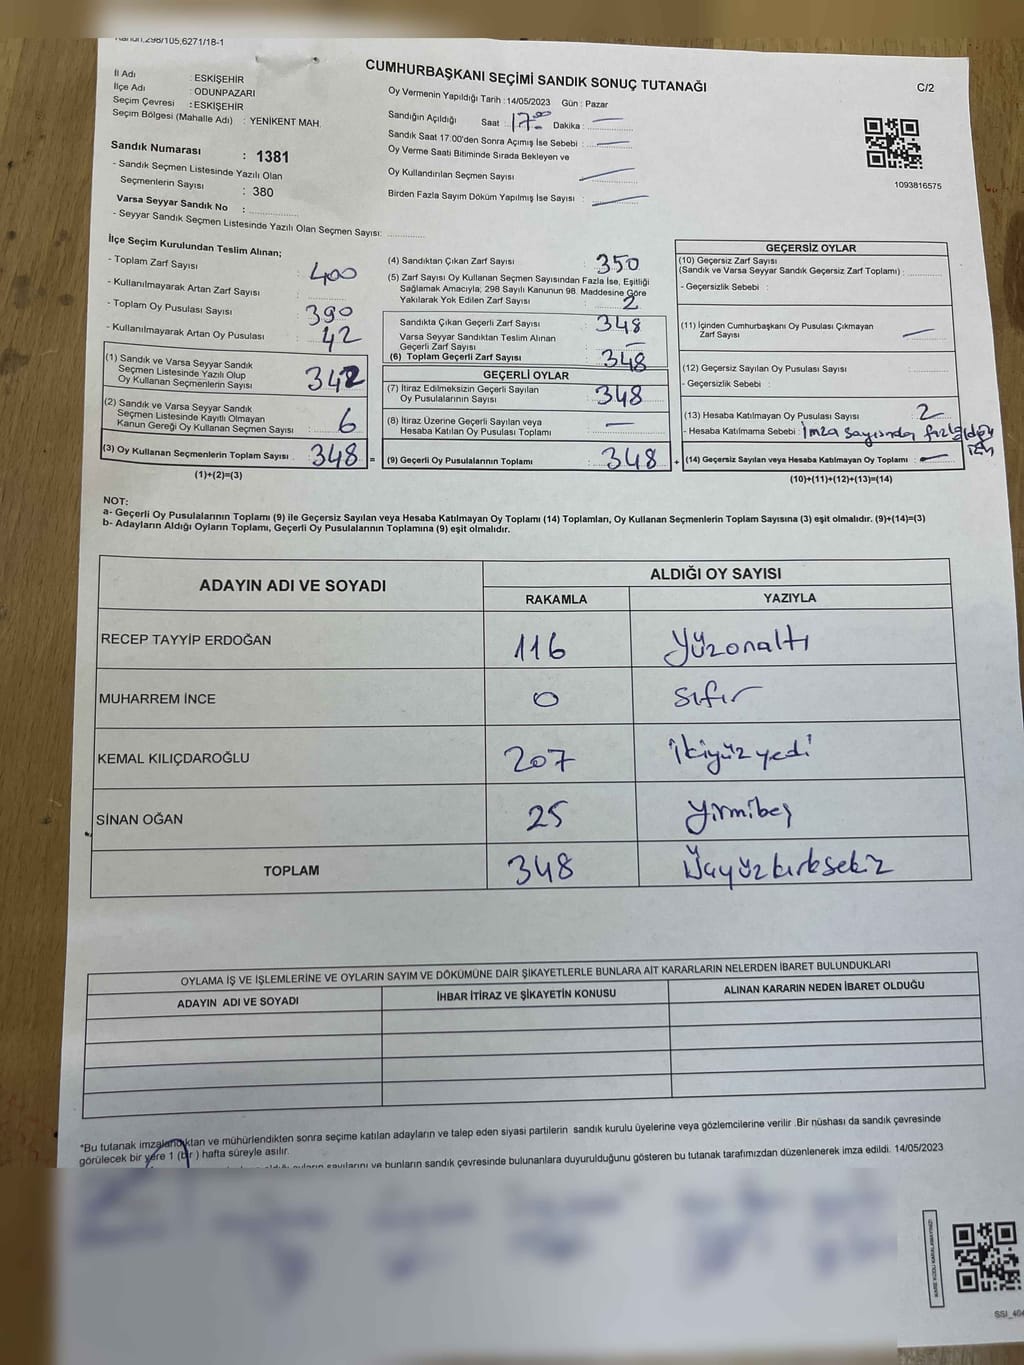 Kanun,298/105,6271/18-1
CUMHURBAŞKANI SEÇİMİ SANDIK SONUÇ TUTANAĞI
C/2
İl Adı : ESKİŞEHİR
İlçe Adı : ODUNPAZARI
Seçim Çevresi : ESKİŞEHİR
Seçim Bölgesi (Mahalle Adı) : YENİKENT MAH.
Sandık Numarası : 1381
- Sandık Seçmen Listesinde Yazılı Olan
Seçmenlerin Sayısı : 380
Varsa Seyyar Sandık No :
- Seyyar Sandık Seçmen Listesinde Yazılı Olan Seçmen Sayısı:
Oy Vermenin Yapıldığı Tarih : 14/05/2023 Gün : Pazar
Sandığın Açıldığı Saat : 17.00 Dakika : —
Sandık Saat 17:00'den Sonra Açımış İse Sebebi : —
Oy Verme Saati Bitiminde Sırada Bekleyen ve
Oy Kullandırılan Seçmen Sayısı —
Birden Fazla Sayım Döküm Yapılmış İse Sayısı : —
1093816575
İlçe Seçim Kurulundan Teslim Alınan;
- Toplam Zarf Sayısı : 400
- Kullanılmayarak Artan Zarf Sayısı :
- Toplam Oy Pusulası Sayısı : 390
- Kullanılmayarak Artan Oy Pusulası : 42
(1) Sandık ve Varsa Seyyar Sandık
Seçmen Listesinde Yazılı Olup
Oy Kullanan Seçmenlerin Sayısı : 342
(2) Sandık ve Varsa Seyyar Sandık
Seçmen Listesinde Kayıtlı Olmayan
Kanun Gereği Oy Kullanan Seçmen Sayısı : 6
(3) Oy Kullanan Seçmenlerin Toplam Sayısı : 348 =
(1)+(2)=(3)
(4) Sandıktan Çıkan Zarf Sayısı : 350
(5) Zarf Sayısı Oy Kullanan Seçmen Sayısından Fazla İse, Eşitliği
Sağlamak Amacıyla; 298 Sayılı Kanunun 98. Maddesine Göre
Yakılarak Yok Edilen Zarf Sayısı : 2
Sandıkta Çıkan Geçerli Zarf Sayısı : 348
Varsa Seyyar Sandıktan Teslim Alınan
Geçerli Zarf Sayısı : —
(6) Toplam Geçerli Zarf Sayısı 348
GEÇERLİ OYLAR
(7) İtiraz Edilmeksizin Geçerli Sayılan
Oy Pusulalarının Sayısı : 348
(8) İtiraz Üzerine Geçerli Sayılan veya
Hesaba Katılan Oy Pusulası Toplamı : —
(9) Geçerli Oy Pusulalarının Toplamı : 348 +
GEÇERSİZ OYLAR
(10) Geçersiz Zarf Sayısı
(Sandık ve Varsa Seyyar Sandık Geçersiz Zarf Toplamı) :
- Geçersizlik Sebebi :
(11) İçinden Cumhurbaşkanı Oy Pusulası Çıkmayan
Zarf Sayısı —
(12) Geçersiz Sayılan Oy Pusulası Sayısı :
- Geçersizlik Sebebi :
(13) Hesaba Katılmayan Oy Pusulası Sayısı : 2
- Hesaba Katılmama Sebebi : İmza sayısından
(14) Geçersiz Sayılan veya Hesaba Katılmayan Oy Toplamı : —
(10)+(11)+(12)+(13)=(14)
NOT:
a- Geçerli Oy Pusulalarının Toplamı (9) ile Geçersiz Sayılan veya Hesaba Katılmayan Oy Toplamı (14) Toplamları, Oy Kullanan Seçmenlerin Toplam Sayısına (3) eşit olmalıdır. (9)+(14)=(3)
b- Adayların Aldığı Oyların Toplamı, Geçerli Oy Pusulalarının Toplamına (9) eşit olmalıdır.
ADAYIN ADI VE SOYADI ALDIĞI OY SAYISI
RAKAMLA YAZIYLA
RECEP TAYYİP ERDOĞAN 116 Yüzonaltı
MUHARREM İNCE 0 sıfır
KEMAL KILIÇDAROĞLU 207 ikiyüzyedi
SİNAN OĞAN 25 yirmibeş
TOPLAM 348 Üçyüzkırksekiz
OYLAMA İŞ VE İŞLEMLERİNE VE OYLARIN SAYIM VE DÖKÜMÜNE DAİR ŞİKAYETLERLE BUNLARA AİT KARARLARIN NELERDEN İBARET BULUNDUKLARI
ADAYIN ADI VE SOYADI İHBAR İTİRAZ VE ŞİKAYETİN KONUSU ALINAN KARARIN NEDEN İBARET OLDUĞU
*Bu tutanak imzalandıktan ve mühürlendikten sonra seçime katılan adayların ve talep eden siyasi partilerin sandık kurulu üyelerine veya gözlemcilerine verilir .Bir nüshası da sandık çevresinde
görülecek bir yere 1 (bir ) hafta süreyle asılır.
oyların sayılarını ve bunların sandık çevresinde bulunanlara duyurulduğunu gösteren bu tutanak tarafımızdan düzenlenerek imza edildi. 14/05/2023
KARE KODU KARALAMAYINIZ!